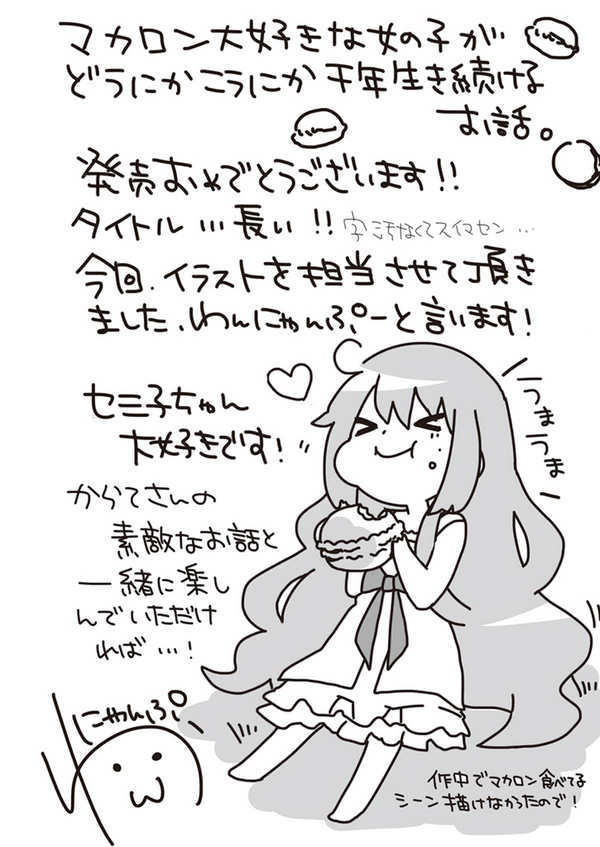 マカロン大好きな女の子が
どうにかこうにか千年生き続ける
お話。
発売おめでとうございます!!
タイトル…長い!!
字汚なくてスイマセン…
今回、イラストを担当させて頂き
ました、わんにゃんぷーと言います!
セミ子ちゃん
大好きです!
うまうま
からてさんの
素敵なお話と
一緒に楽し
んでいただけ
れば…!
にゃんぷ
作中でマカロン食べてる
シーン描けなかったので!